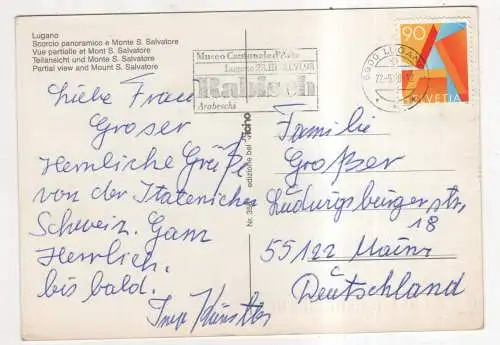 Lugano
Scorcio panoramico e Monte S. Salvatore
Vue partielle et Mont S. Salvatore
Teilansicht und Monte S. Salvatore
Partial view and Mount S. Salvatore
Museo Cantonale d'Arte
Lugano
Rabisch
Arabeschi
6900 LUGANO
90
HELVETIA
Liebe Frau
Groser
Herrliche Grüße
von der Italenischen
Schweiz. Ganz
Herrlich.
bis bald.
Künstler
edizione bei
Familie
Großer
Ludwigsburger str.
18
55122 Mainz
Deutschland